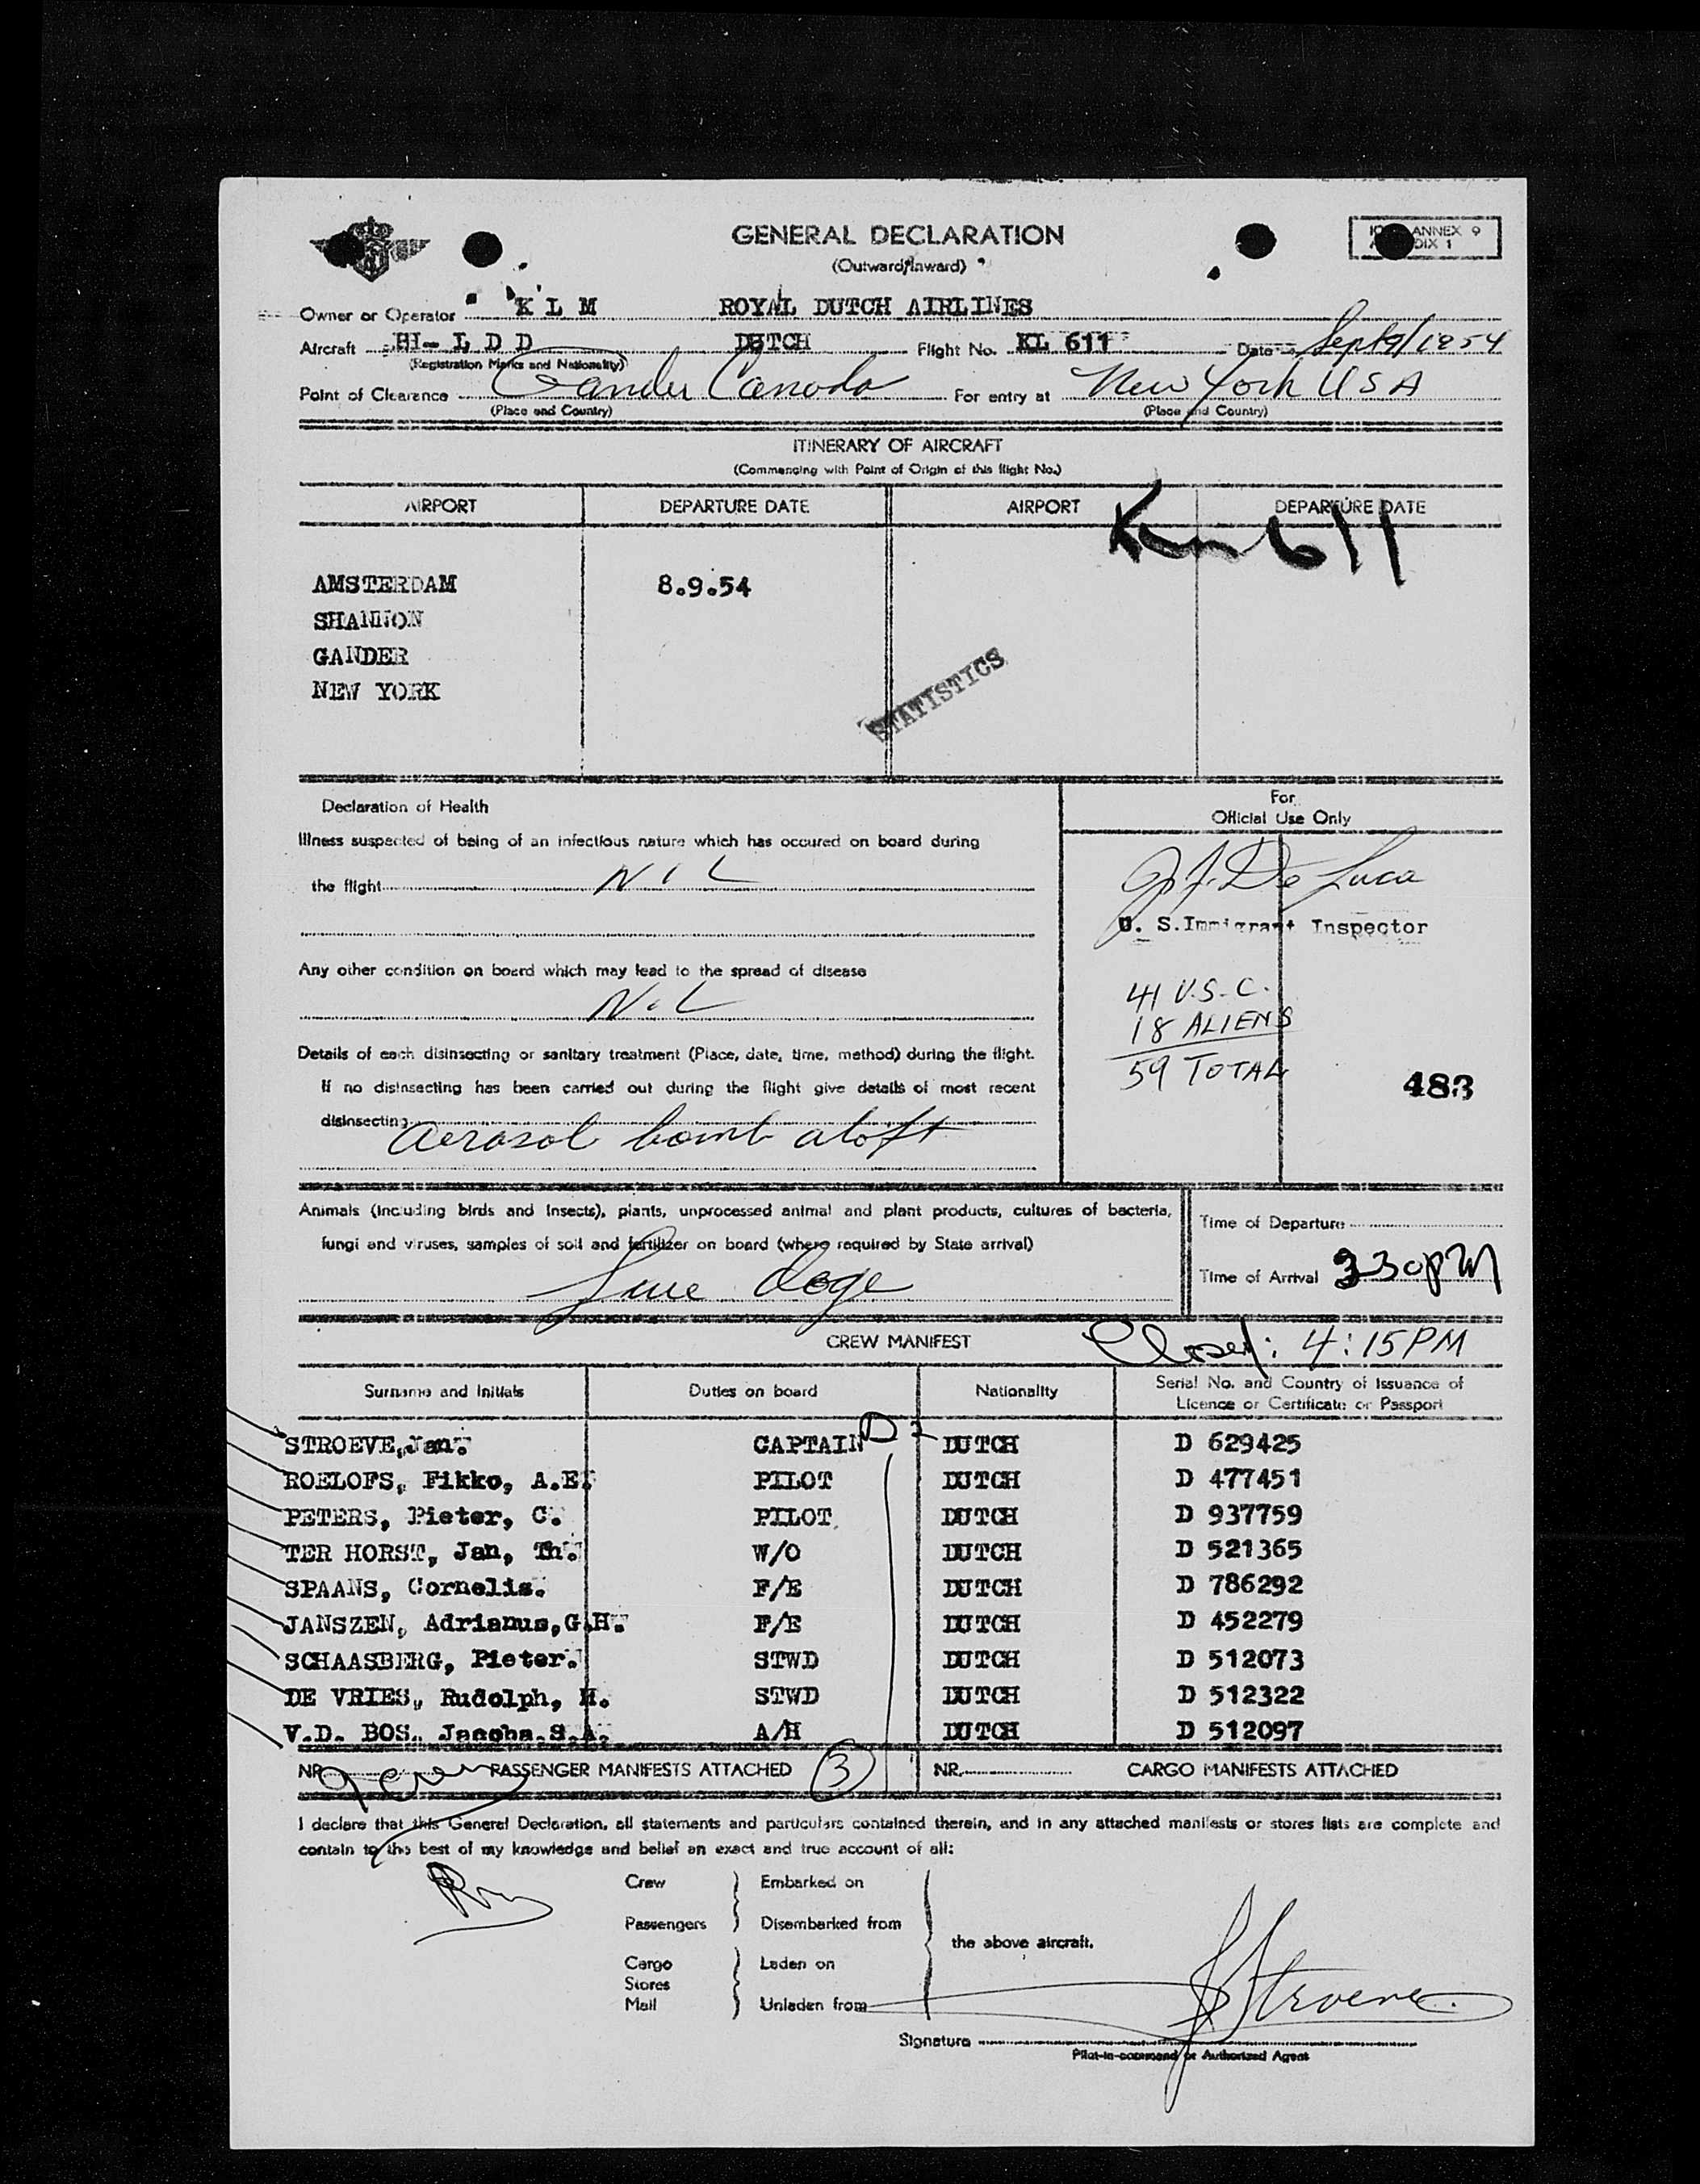 GENERAL DECLARATION
(Outward/Inward)
ANNEX 9
DIX 1
Owner or Operator K L M ROYAL DUTCH AIRLINES
Aircraft L D D DUTCH Flight No. KL 611 Date Sept 9/1954
(Registration Marks and Nationality)
Point of Clearance Gander Canada For entry at New York USA
(Place and Country) (Place and Country)
ITINERARY OF AIRCRAFT
(Commencing with Point of Origin of this flight No.)
AIRPORT DEPARTURE DATE AIRPORT DEPARTURE DATE
611
AMSTERDAM 8.9.54
SHANNON
GANDER
NEW YORK
STATISTICS
Declaration of Health
For
Official Use Only
Illness suspected of being of an infectious nature which has occured on board during
the flight NIL
De Luca
U. S. Immigrant Inspector
Any other condition on board which may lead to the spread of disease
NIL
41 U.S.C.
18 ALIENS
59 TOTAL
483
Details of each disinsecting or sanitary treatment (Place, date, time, method) during the flight.
If no disinsecting has been carried out during the flight give details of most recent
disinsecting aerosol bomb aloft
Animals (including birds and insects), plants, unprocessed animal and plant products, cultures of bacteria,
fungi and viruses, samples of soil and fertilizer on board (where required by State arrival)
Time of Departure
Time of Arrival 330PM
CREW MANIFEST
Closed: 4:15PM
Surname and Initials Duties on board Nationality Serial No. and Country of Issuance of
Licence or Certificate or Passport
STROEVE, Jan. CAPTAIN D 2 DUTCH D 629425
ROELOFS, Fikko, A.E. PILOT DUTCH D 477451
PETERS, Pieter, C. PILOT DUTCH D 937759
TER HORST, Jan, Th. W/O DUTCH D 521365
SPAANS, Cornelis. F/E DUTCH D 786292
JANSZEN, Adrianus, G.H. F/E DUTCH D 452279
SCHAASBERG, Pieter. STWD DUTCH D 512073
DE VRIES, Rudolph, H. STWD DUTCH D 512322
V.D. BOS, Jacoba.S.A. A/H DUTCH D 512097
NR. PASSENGER MANIFESTS ATTACHED 3 NR. CARGO MANIFESTS ATTACHED
9 crew
I declare that this General Declaration, all statements and particulars contained therein, and in any attached manifests or stores lists are complete and
contain to the best of my knowledge and belief an exact and true account of all:
Crew Embarked on
Passengers Disembarked from
the above aircraft.
Cargo Laden on
Stores
Mail Unladen from
Signature J Stroeve.
Pilot-in-command or Authorized Agent